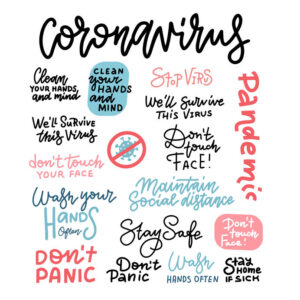 Coronavirus
Clean
YOUR HANDS,
and mind
CLEAN
YOUR
HANDS
and
MIND
STOP VIRS
We'll Survive
THIS VIRUS
Pandemic
We'll SURVIVE
this Virus
Don't
touch
FACE!
don't touch
YOUR FACE
Wash your
HANDS
Often
Maintain
Social distance
Stay Safe
Don't
touch
Face!
DON'T
PANIC
Don't
Panic
Wash
HANDS OFTEN
Stay
HOME
IF SICK